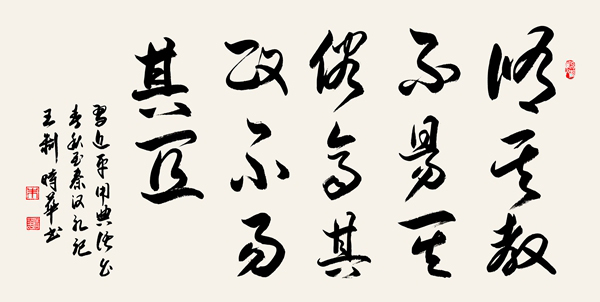 修其教
不易其
俗齐其
政不易
其宜
習近平用典语出
春秋至秦汉礼记
王制 時華书